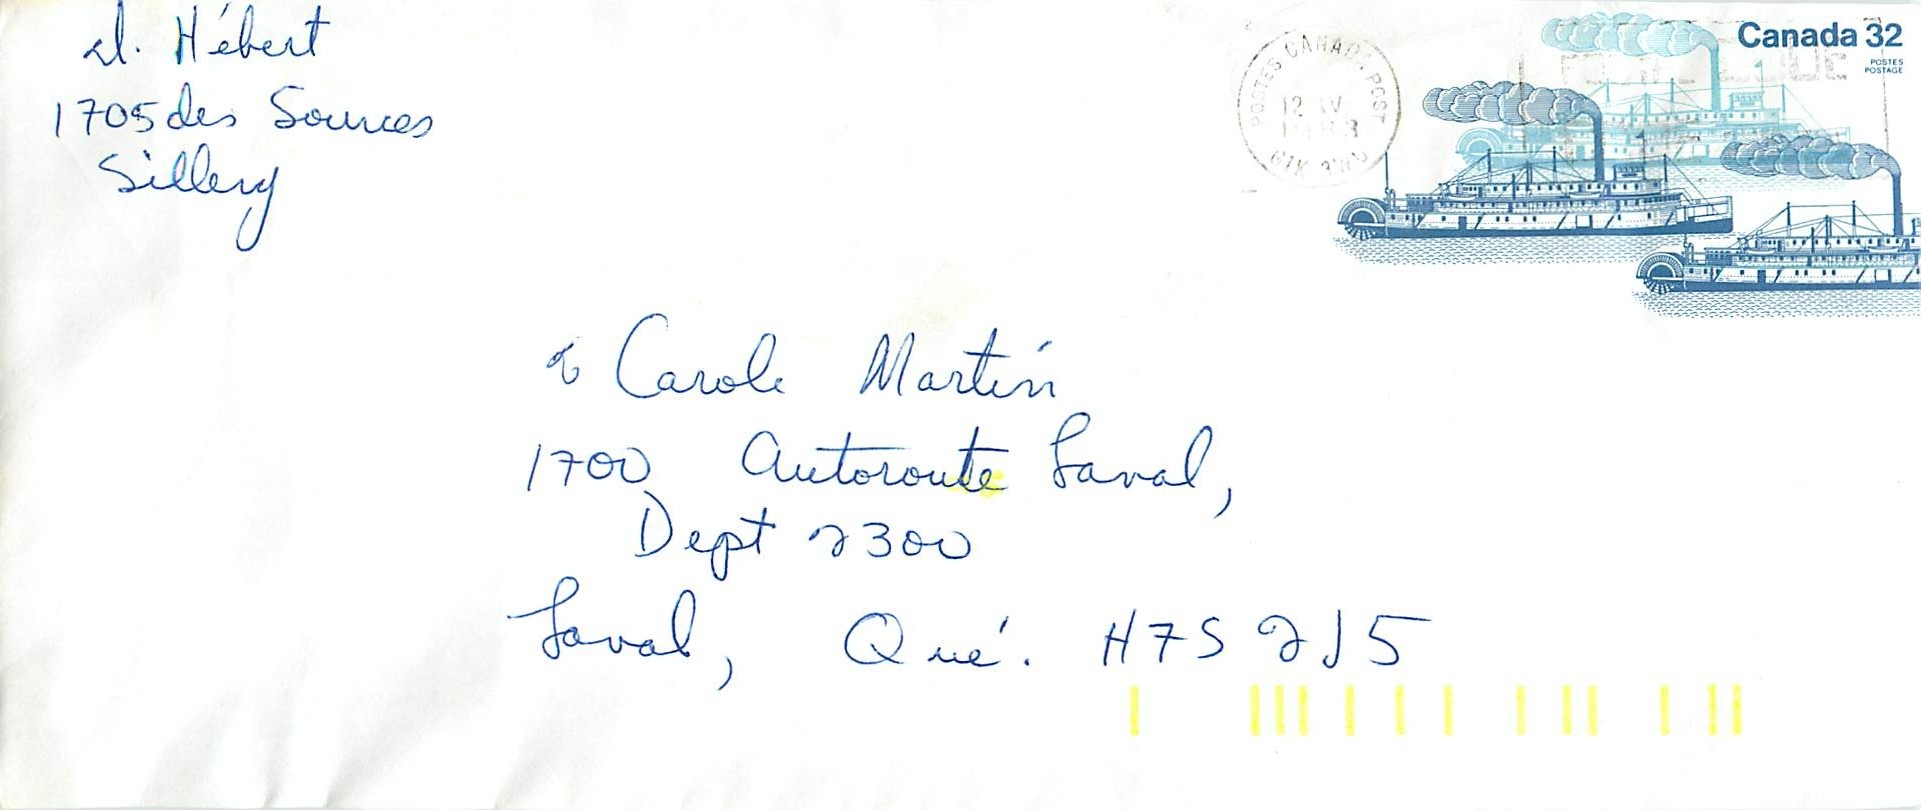 d. Hébert
1705 des Sources
Sillery
POSTES CANADA POST
12 IV
1983
G1K
Canada 32
POSTES
POSTAGE
Carole Martin
1700 Autoroute Laval,
Dept 2300
Laval, Qué. H7S 2J5